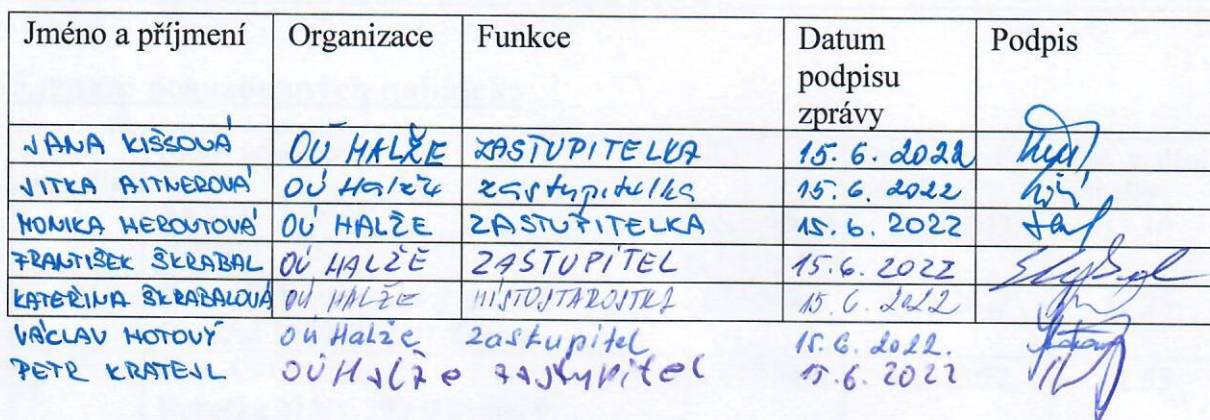 Jméno a příjmení Organizace Funkce Datum podpisu zprávy Podpis
JANA KIŠSOVÁ OÚ HALŽE ZASTUPITELKA 15. 6. 2022
JITKA AITNEROVÁ OÚ Halže zastupitelka 15. 6. 2022
MONIKA HEROUTOVÁ OÚ HALŽE ZASTUPITELKA 15. 6. 2022
FRANTIŠEK ŠKRABAL OÚ HALŽE ZASTUPITEL 15. 6. 2022
KATEŘINA ŠKRABALOVÁ OÚ HALŽE MÍSTOSTAROSTKA 15. 6. 2022
VÁCLAV HOTOVÝ OÚ Halže zastupitel 15. 6. 2022.
PETR KRATEJL OÚ Halže zastupitel 15. 6. 2022